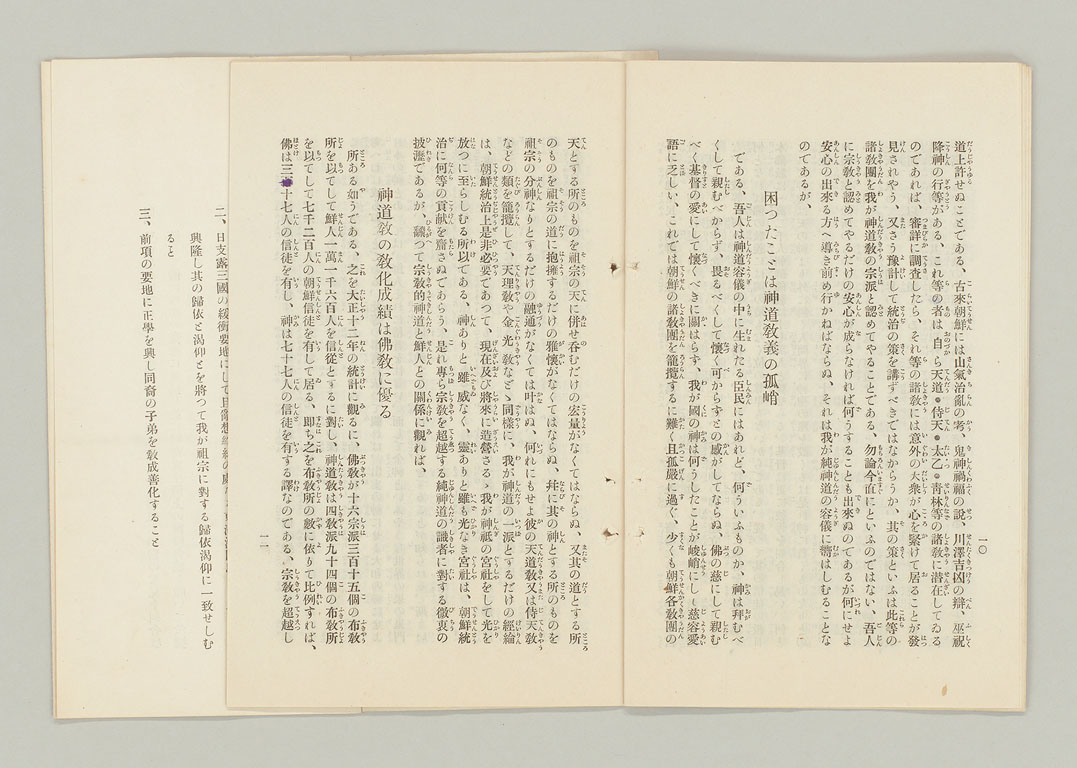 道上許せぬことである、古來朝鮮には山氣治亂の考、鬼神禍福の說、川澤吉凶の辯、巫祝
降神の行等がある、これ等の者は自ら天道●侍天●太乙●靑林等の諸敎に潜在してゐる
のであれば、審詳に調査したら、それ等の諸敎には意外の大衆が心を繫けて居ることが發
見されやう、又さう豫計して統治の策を講ずべきではなからうか、其の策といふは此等の
諸敎團を我が神道敎の宗派と認めてやることである、勿論今直にといふのではない、吾人
に宗敎と認めてやるだけの安心が成らなければ何うすることも出來ぬのであるが何にせよ
安心の出來る方へ導き前め行かねばならぬ、それは我が純神道の容儀に
はしむることな
のであるが、
困つたことは神道敎義の孤峭
である、吾人は神道容儀の中に生れたる臣民にはあれど、何ういふものか、神は拜むべ
くして親むべからず、畏るべくして懷く可からずとの感がしてならぬ、佛の慈にして親む
べく基督の愛にして懷くべきに關はらず、我が國の神は何うしたことが峻峭にし慈容愛
語に乏しい、これでは朝鮮の諸敎團を籠攬するに難く且孤嚴に過ぐ、少くも朝鮮各敎團の
一〇
天とする所のものを祖宗の天に併せ呑むだけの宏量がなくてはならぬ、又其の道とする所
のものを祖宗の道に抱擁するだけの雅懷がなくてはならぬ、幷に其の神とする所のものを
祖宗の分神なりとするだけの融通がなくては叶はぬ、何れにもせよ彼の天道敎又は侍天敎
などの類を籠攬して、天理敎や金光敎などゝ同樣に、我が神道の一派とするだけの經綸
は、朝鮮統治上是非必要であつて、現在及び將來に造營さるゝ我が神祇の宮社をして光を
放つに至らしむる所以である、神ありと雖威なく、靈ありと雖も光なき宮社は、朝鮮統
治に何等の貢獻を齎さぬであらう、是れ專ら宗敎を超越する純神道の識者に對する微衷の
披瀝であるが、飜つて宗敎的神道と鮮人との關係に觀れば、
神道敎の敎化成績は佛敎に優る
所ある如うである、之を大正十二年の統計に觀るに、佛敎が十六宗派三百十五個の布敎
所を以てして鮮人一萬一千六百人を信徒とするに對し、神道敎は四敎派九十四個の布敎所
を以てして七千二百人の朝鮮信徒を有して居る、卽ち之を布敎所の數に依りて比例すれば、
佛は三十七人の信徒を有し、神は七十七人の信徒を有する譯なのである、宗敎を超越し
一一
二、日支露三國の緩衝要地にして且
興隆し其の歸依と渴仰とを將つて我が祖宗に對する歸依渴仰に一致せしむ
ること
三、前項の要地に正學を興し同胄の子弟を敎成善化すること